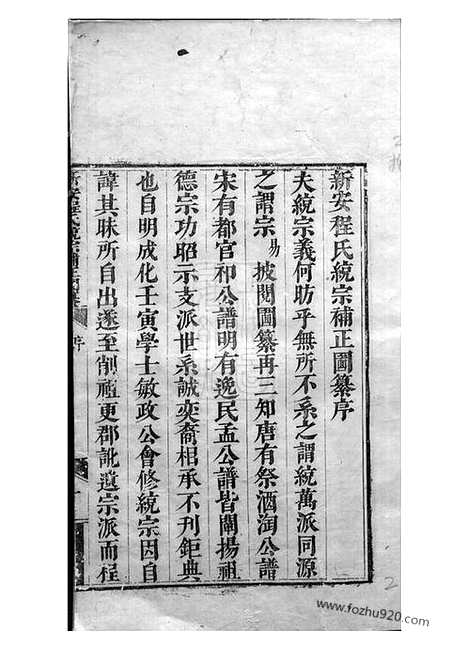 新安程氏統宗補正圖纂序
夫統宗義何昉乎無所不系之謂統萬派同源
之謂宗易披閱圖纂再三知唐有祭酒淘公譜
宋有都官祁公譜明有逸民孟公譜皆闡揚祖
德宗功昭示支派世系誠奕裔相承不刊鉅典
也自明成化壬寅學士敏政公會修統宗因自
諱其昧所自出遂至削禰更郡訛遺宗派而程
新安程氏統宗補正圖纂 序
www.fozhu920.com